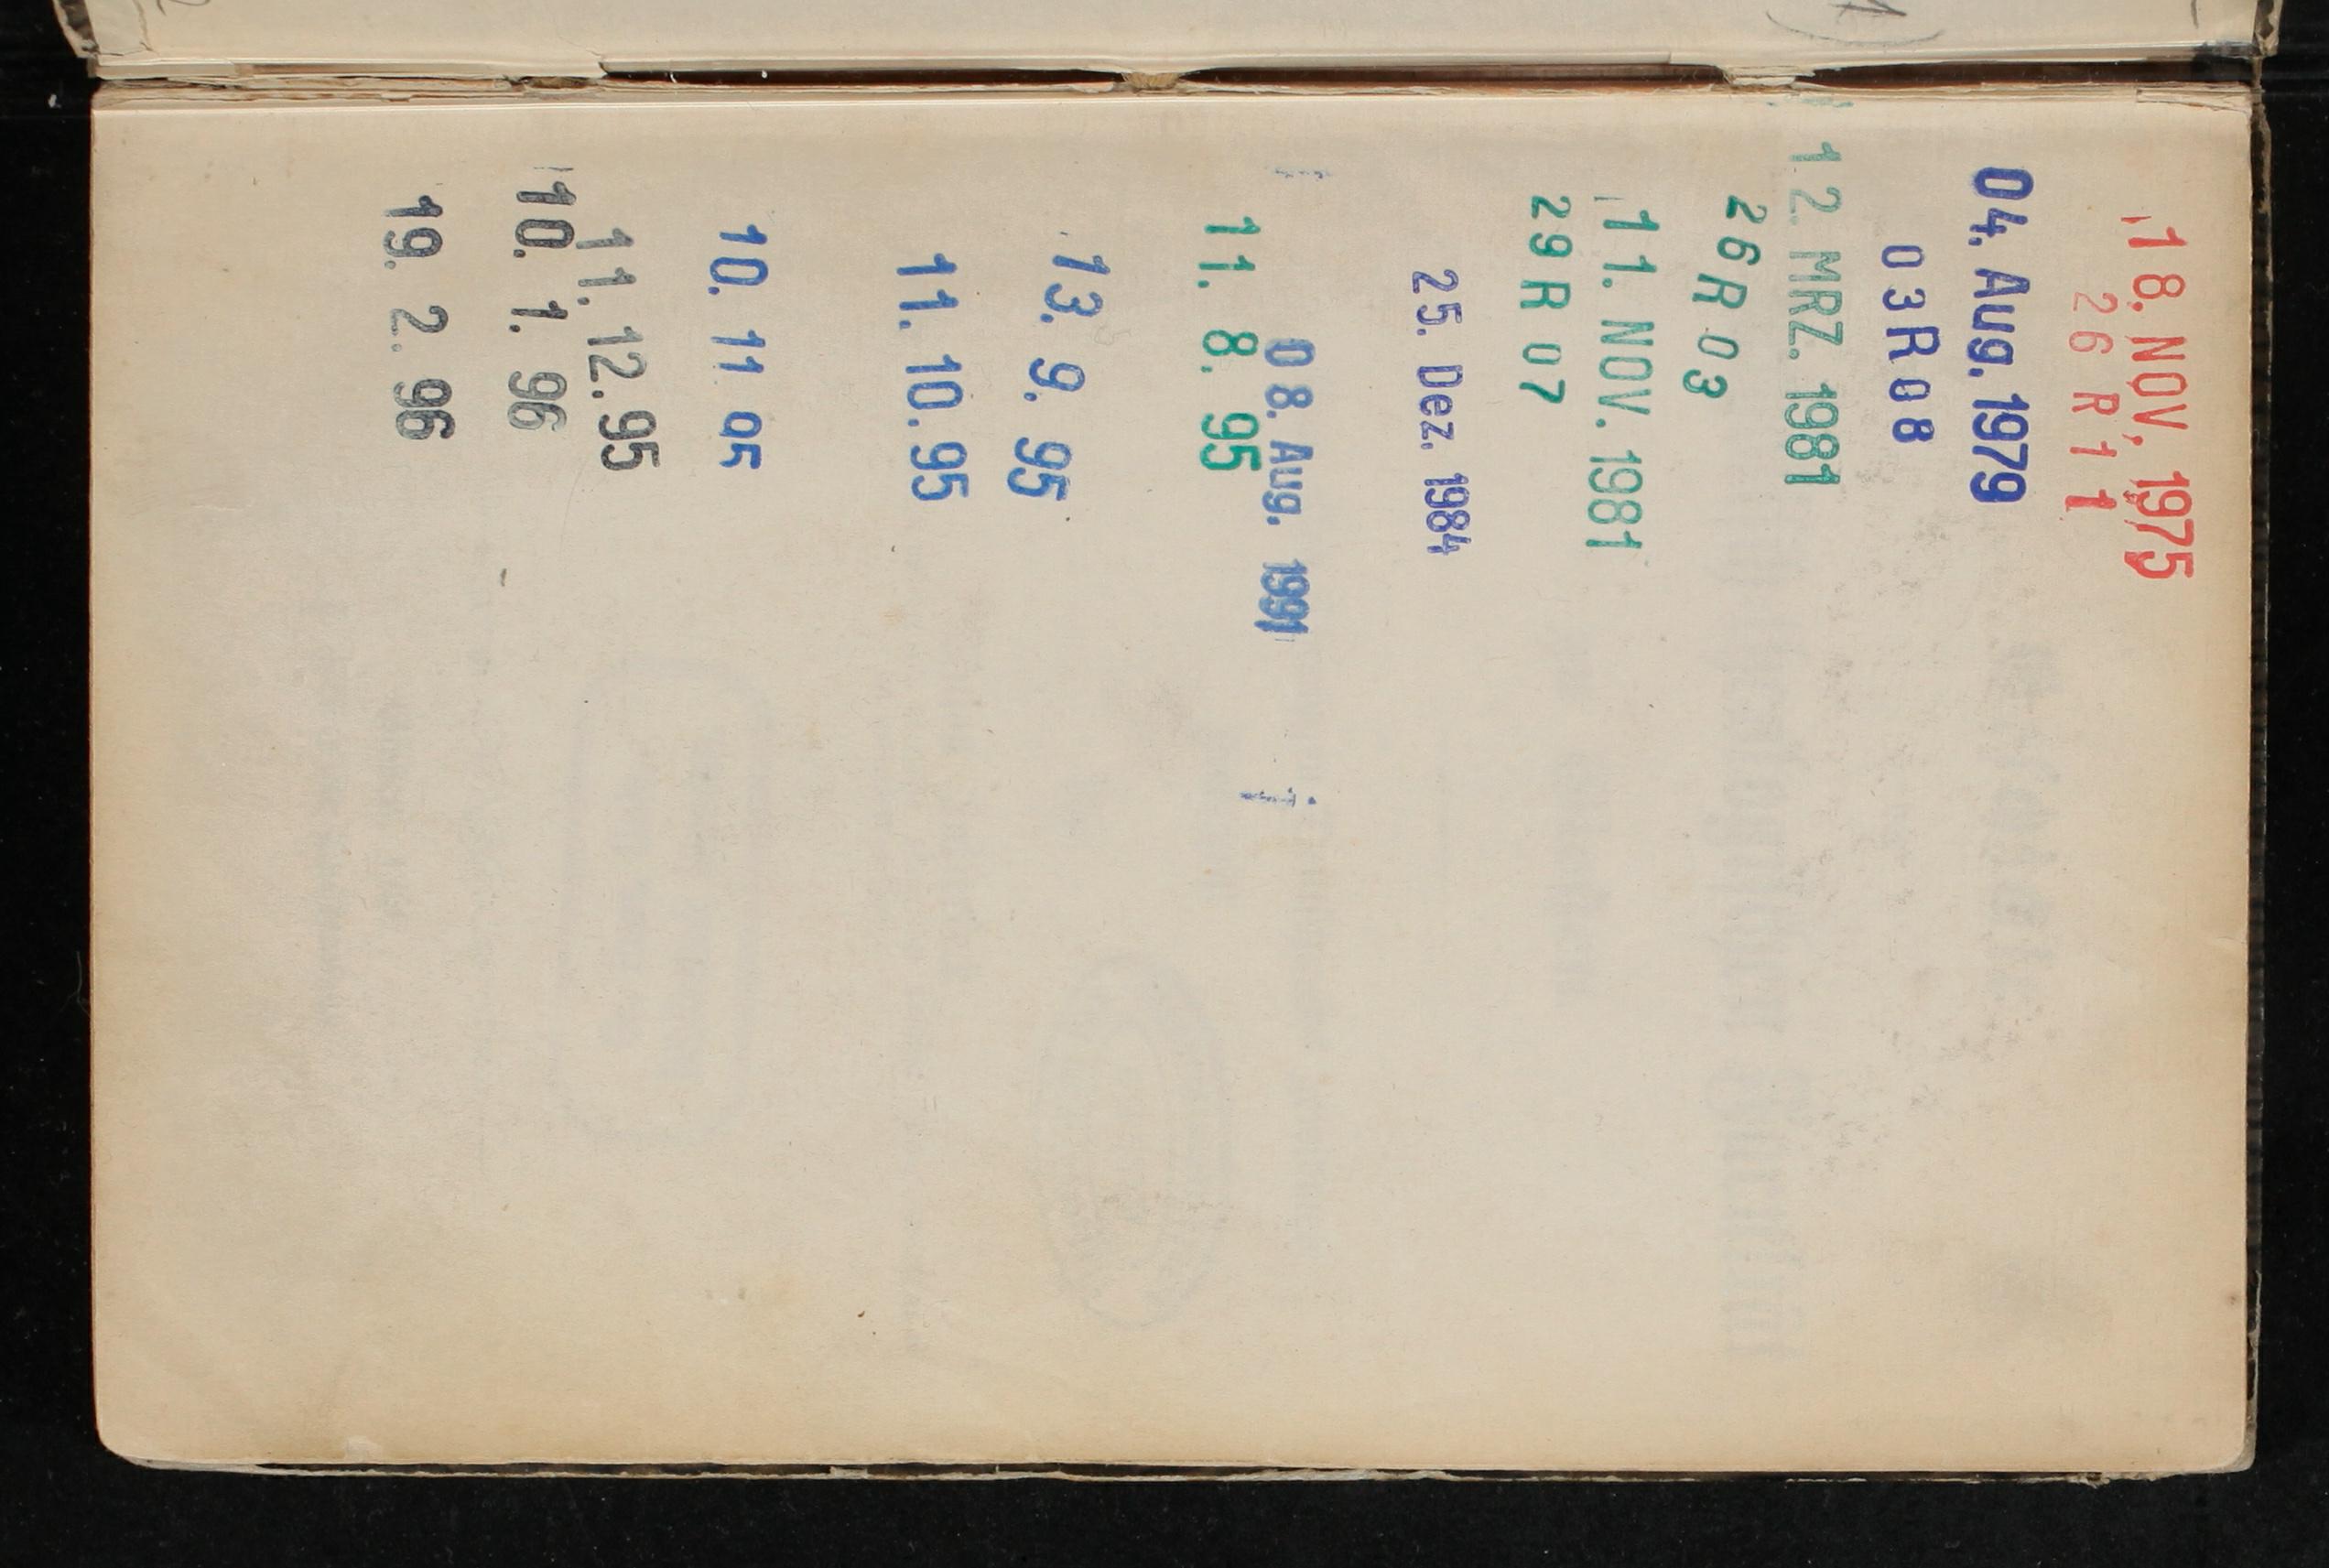 18. NOV. 1975
26 R 11
04. Aug. 1979
03R08
12. MRZ. 1981
26R03
11. NOV. 1981
29R07
25. Dez. 1984
08. Aug. 1991
11. 8. 95
13. 9. 95
11. 10. 95
10. 11 95
11. 12. 95
10. 1. 96
19. 2. 96